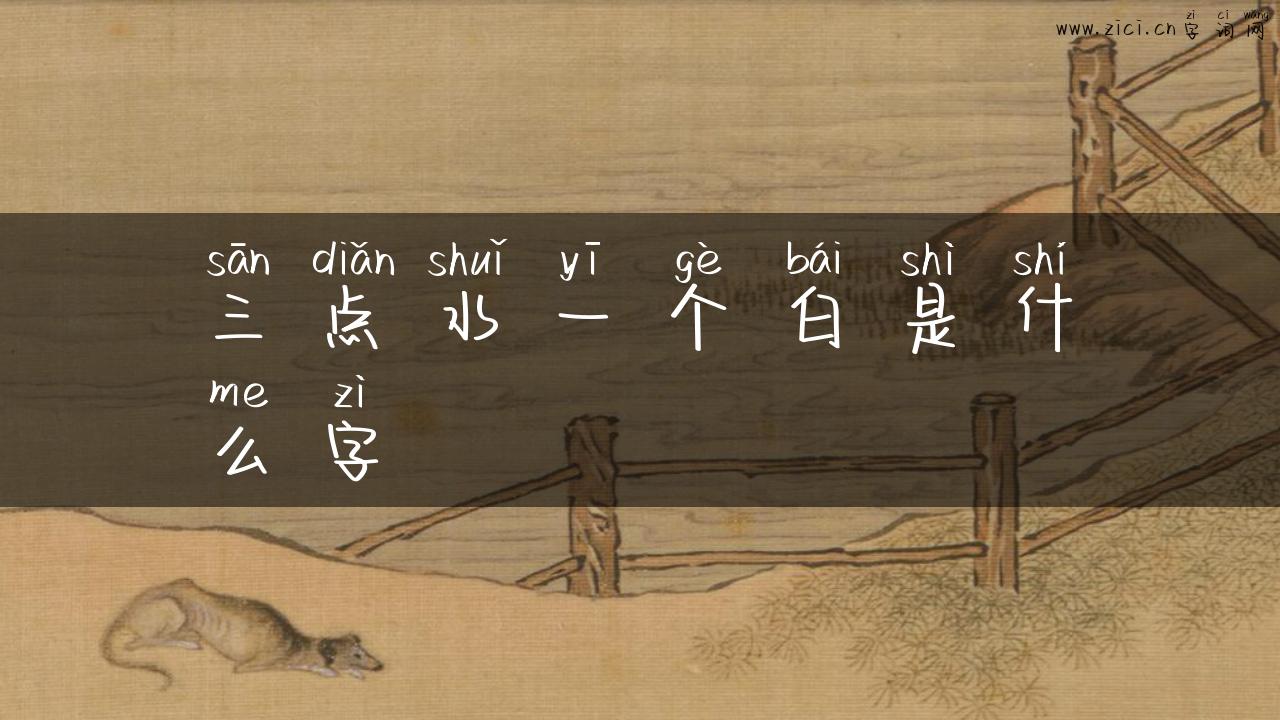 zi ci wang
www.zici.cn 字词网
sān diǎn shuǐ yī gè bái shì shí
三点水一个白是什
me zì
么字